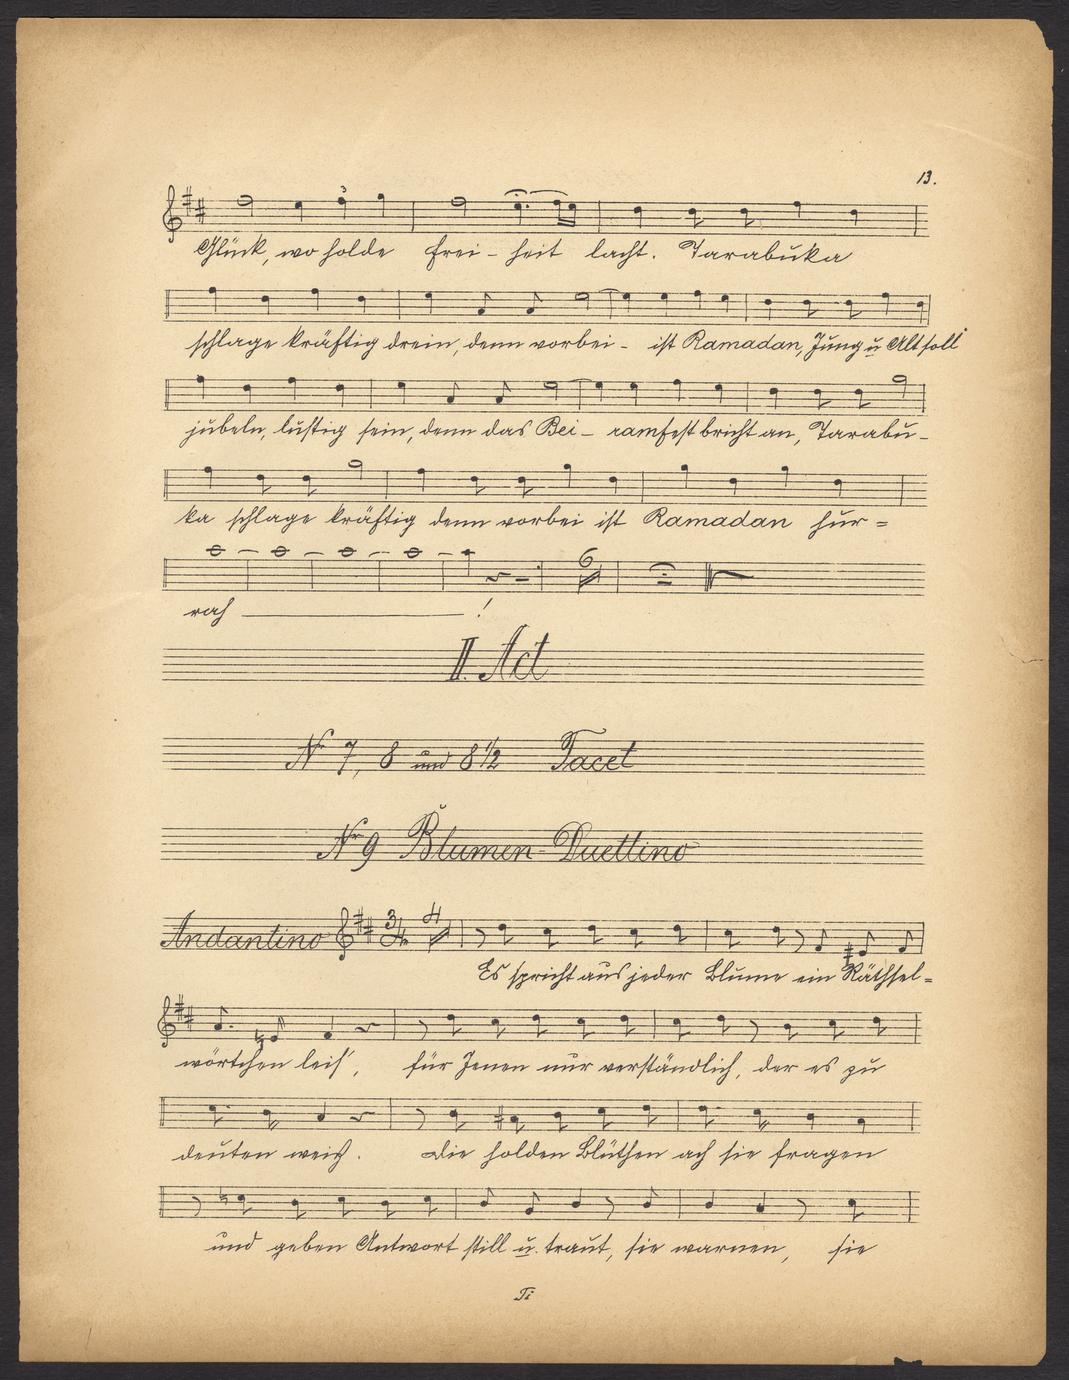 13.
Glück, wo holde Frei - heit lacht. Tarabuka
schlage kräftig drein, denn vorbei - ist Ramadan, Jung u Alt soll
jubeln, lustig sein, denn das Bei - ramfest bricht an, Tarabu -
ka schlage kräftig denn vorbei ist Ramadan hur =
6
rah !
II. Act
Nr 7, 8 und 8½ Tacet
Nr 9 Blumen-Duettino
Andantino 3/4 4
Es spricht aus jeder Blume ein Räthsel =
wörtchen leis', für Jenen nur verständlich, der es zu
deuten weiß. Die holden Blüthen ach sie fragen
und geben Antwort still u. traut, sie warnen, sie